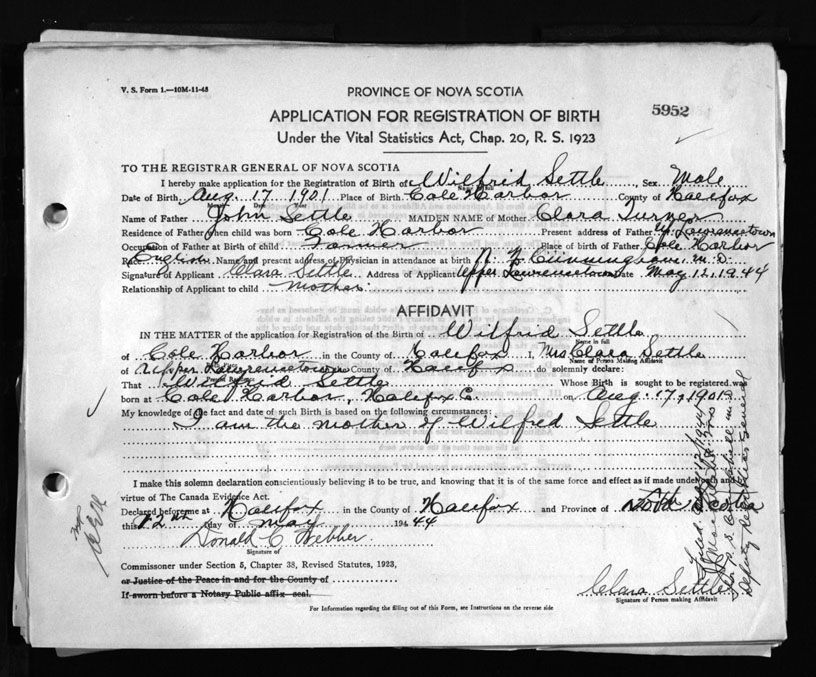 V. S. Form 1.—10M-11-43
PROVINCE OF NOVA SCOTIA
5952
APPLICATION FOR REGISTRATION OF BIRTH
Under the Vital Statistics Act, Chap. 20, R. S. 1923
TO THE REGISTRAR GENERAL OF NOVA SCOTIA
I hereby make application for the Registration of Birth of Wilfrid Settle, Sex Male
Date of Birth Aug. 17 1901 Place of Birth Cole Harbor County of Halifax
Name of Father John Settle MAIDEN NAME of Mother Clara Turner
Residence of Father when child was born Cole Harbor Present address of Father Up. Lawrencetown
Occupation of Father at Birth of child Farmer Place of birth of Father Cole Harbor
Race English Name and present address of Physician in attendance at birth Cunningham M. D.
Signature of Applicant Clara Settle Address of Applicant Upper Lawrencetown Date May 12, 1944
Relationship of Applicant to child Mother
AFFIDAVIT
IN THE MATTER of the application for Registration of the Birth of Wilfrid Settle
Name in full
of Cole Harbor in the County of Halifax I, Mrs Clara Settle
Name of Person Making Affidavit
of Upper Lawrencetown County of Halifax do solemnly declare:
That Wilfrid Settle Whose Birth is sought to be registered was
born at Cole Harbor, Halifax C. on Aug. 17, 1901
My knowledge of the fact and date of such Birth is based on the following circumstances:
I am the mother of Wilfred Settle
I make this solemn declaration conscientiously believing it to be true, and knowing that it is of the same force and effect as if made under oath and by
virtue of The Canada Evidence Act.
Declared before me at Halifax in the County of Halifax and Province of Nova Scotia
this 12th day of May 1944
Donald C Webber
Signature of
Commissioner under Section 5, Chapter 38, Revised Statutes, 1923,
or Justice of the Peace in and for the County of
If sworn before a Notary Public affix seal.
Clara Settle
Signature of Person making Affidavit
For Information regarding the filling out of this Form, see Instructions on the reverse side
Deputy Registrar General